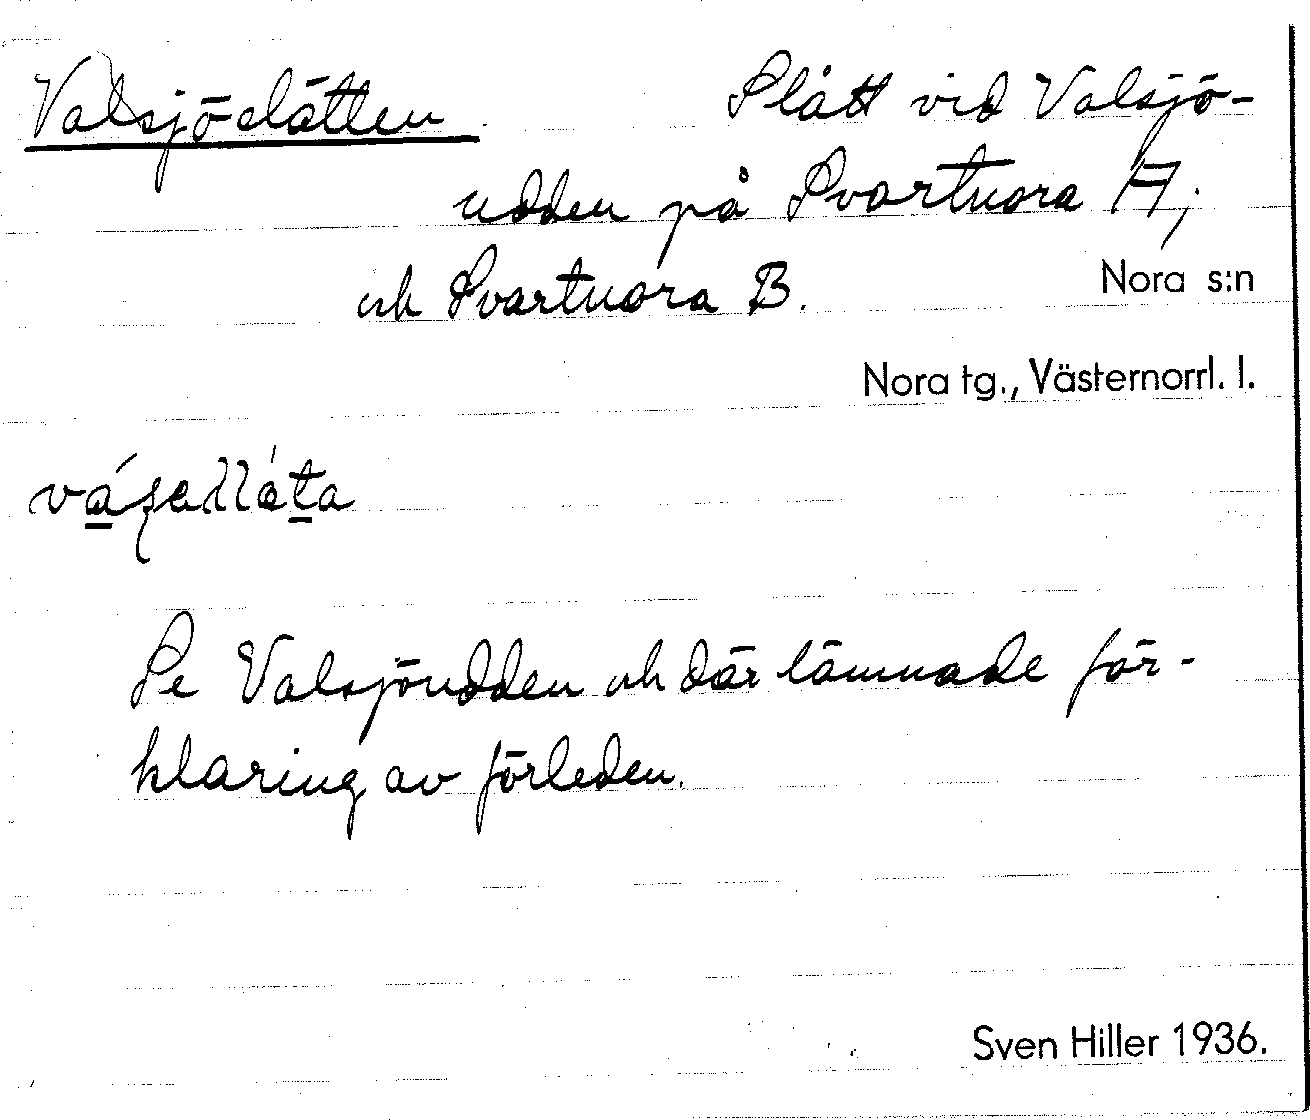 Valsjöslåtten Slått vid Valsjö-
udden på Svartnora A,
och Svartnora B. Nora s:n
Nora tg., Västernorrl. l.
Se Valsjöudden och där lämnade för-
klaring av förleden.
Sven Hiller 1936.